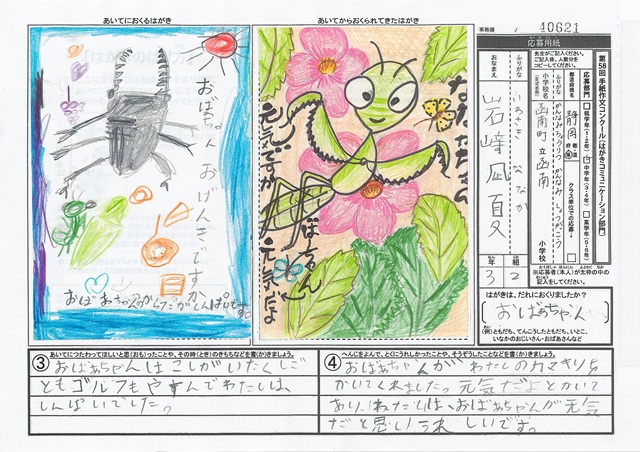 あいてにおくるはがき
あいてからおくられてきたはがき
40621
応募用紙
先生がご記入ください。
ご記入後、人数分を
コピーしてください。
第58回 手紙作文コンクール〈はがきコミュニケーション部門〉
応募部門
低学年(1・2年)
中学年(3・4年)
高学年(5・6年)
都道府県名
静岡
小学校名
ふりがな
函南町立函南
小学校
クラス単位での応募
おなまえ
ふりがな
いわさき ななか
岩崎凪夏
3年2
※応募者(本人)が太枠の中の
記入をしてください。
はがきは、だれにおくりましたか?
おばあちゃん
(例)ともだち、てんこうしたともだち、いとこ、
いなかのおじいさん・おばあさんなど
おばあちゃん おげんきですか
おばあちゃんのからだがしんぱいです。
元気ですか
ばーちゃん
元気だよ
③ あいてにつたわってほしいと思(おも)ったことや、その時(とき)のきもちなどを書(か)きましょう。
おばあちゃんはこしがいたくしご
ともゴルフもやすんでわたしは、
しんぱいでした。
④ へんじをよんで、とくにうれしかったことや、そうぞうしたことなどを書(か)きましょう。
おばあちゃんがわたしのカマキリを
かいてくれました。元気だよとかいて
ありましたわたしは、おばあちゃんが元気
だと思いうれしいです。